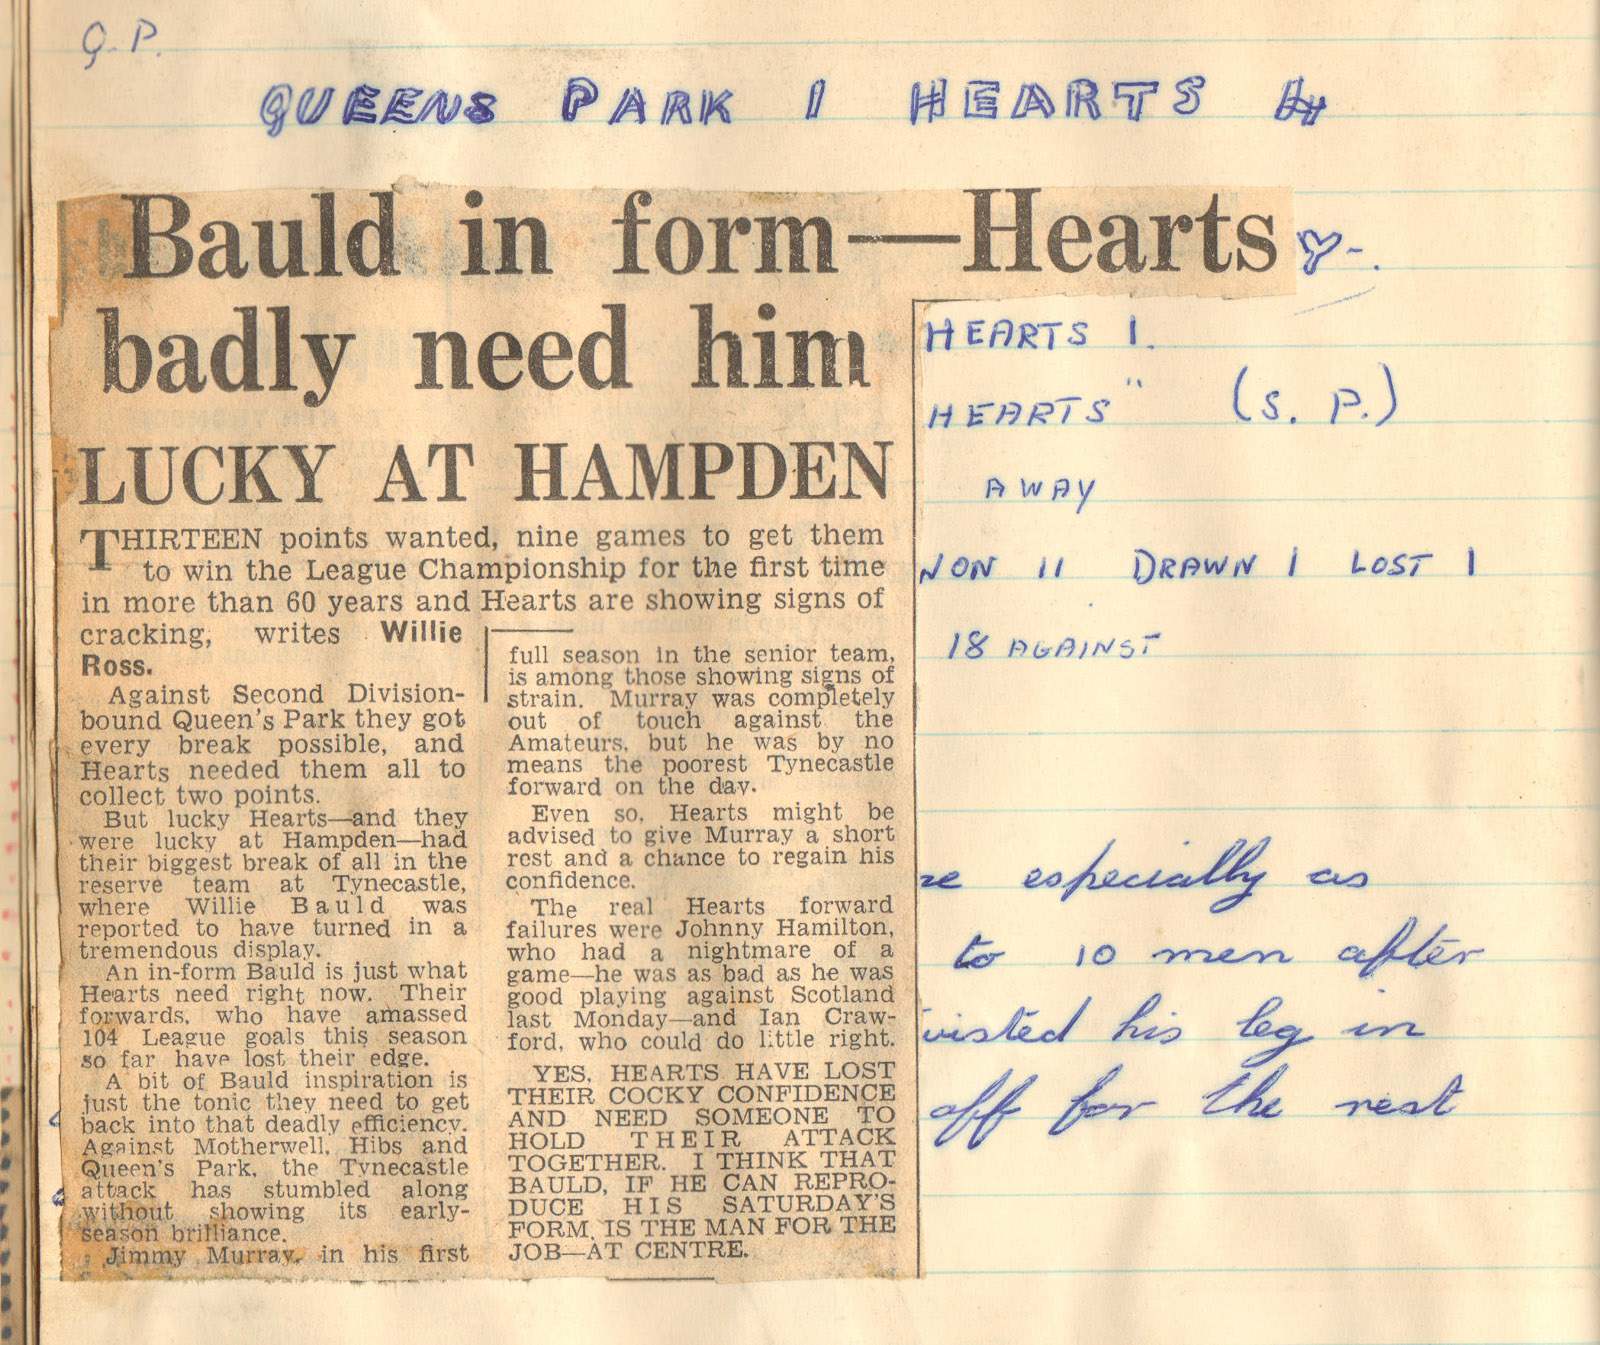 Q. P.
QUEENS PARK 1 HEARTS 4
Bauld in form—Hearts
badly need him
LUCKY AT HAMPDEN
THIRTEEN points wanted, nine games to get them
to win the League Championship for the first time
in more than 60 years and Hearts are showing signs of
cracking, writes Willie
Ross.
Against Second Division-
bound Queen's Park they got
every break possible, and
Hearts needed them all to
collect two points.
But lucky Hearts—and they
were lucky at Hampden—had
their biggest break of all in the
reserve team at Tynecastle,
where Willie Bauld was
reported to have turned in a
tremendous display.
An in-form Bauld is just what
Hearts need right now. Their
forwards, who have amassed
104 League goals this season
so far have lost their edge.
A bit of Bauld inspiration is
just the tonic they need to get
back into that deadly efficiency.
Against Motherwell, Hibs and
Queen's Park, the Tynecastle
attack has stumbled along
without showing its early-
season brilliance.
Jimmy Murray, in his first
full season in the senior team,
is among those showing signs of
strain. Murray was completely
out of touch against the
Amateurs, but he was by no
means the poorest Tynecastle
forward on the day.
Even so, Hearts might be
advised to give Murray a short
rest and a chance to regain his
confidence.
The real Hearts forward
failures were Johnny Hamilton,
who had a nightmare of a
game—he was as bad as he was
good playing against Scotland
last Monday—and Ian Craw-
ford, who could do little right.
YES, HEARTS HAVE LOST
THEIR COCKY CONFIDENCE
AND NEED SOMEONE TO
HOLD THEIR ATTACK
TOGETHER. I THINK THAT
BAULD, IF HE CAN REPRO-
DUCE HIS SATURDAY'S
FORM, IS THE MAN FOR THE
JOB—AT CENTRE.
Y-.
HEARTS 1.
HEARTS" (S. P.)
AWAY
WON 11 DRAWN 1 LOST 1
18 AGAINST
re especially as
to 10 men after
wisted his leg in
off for the rest